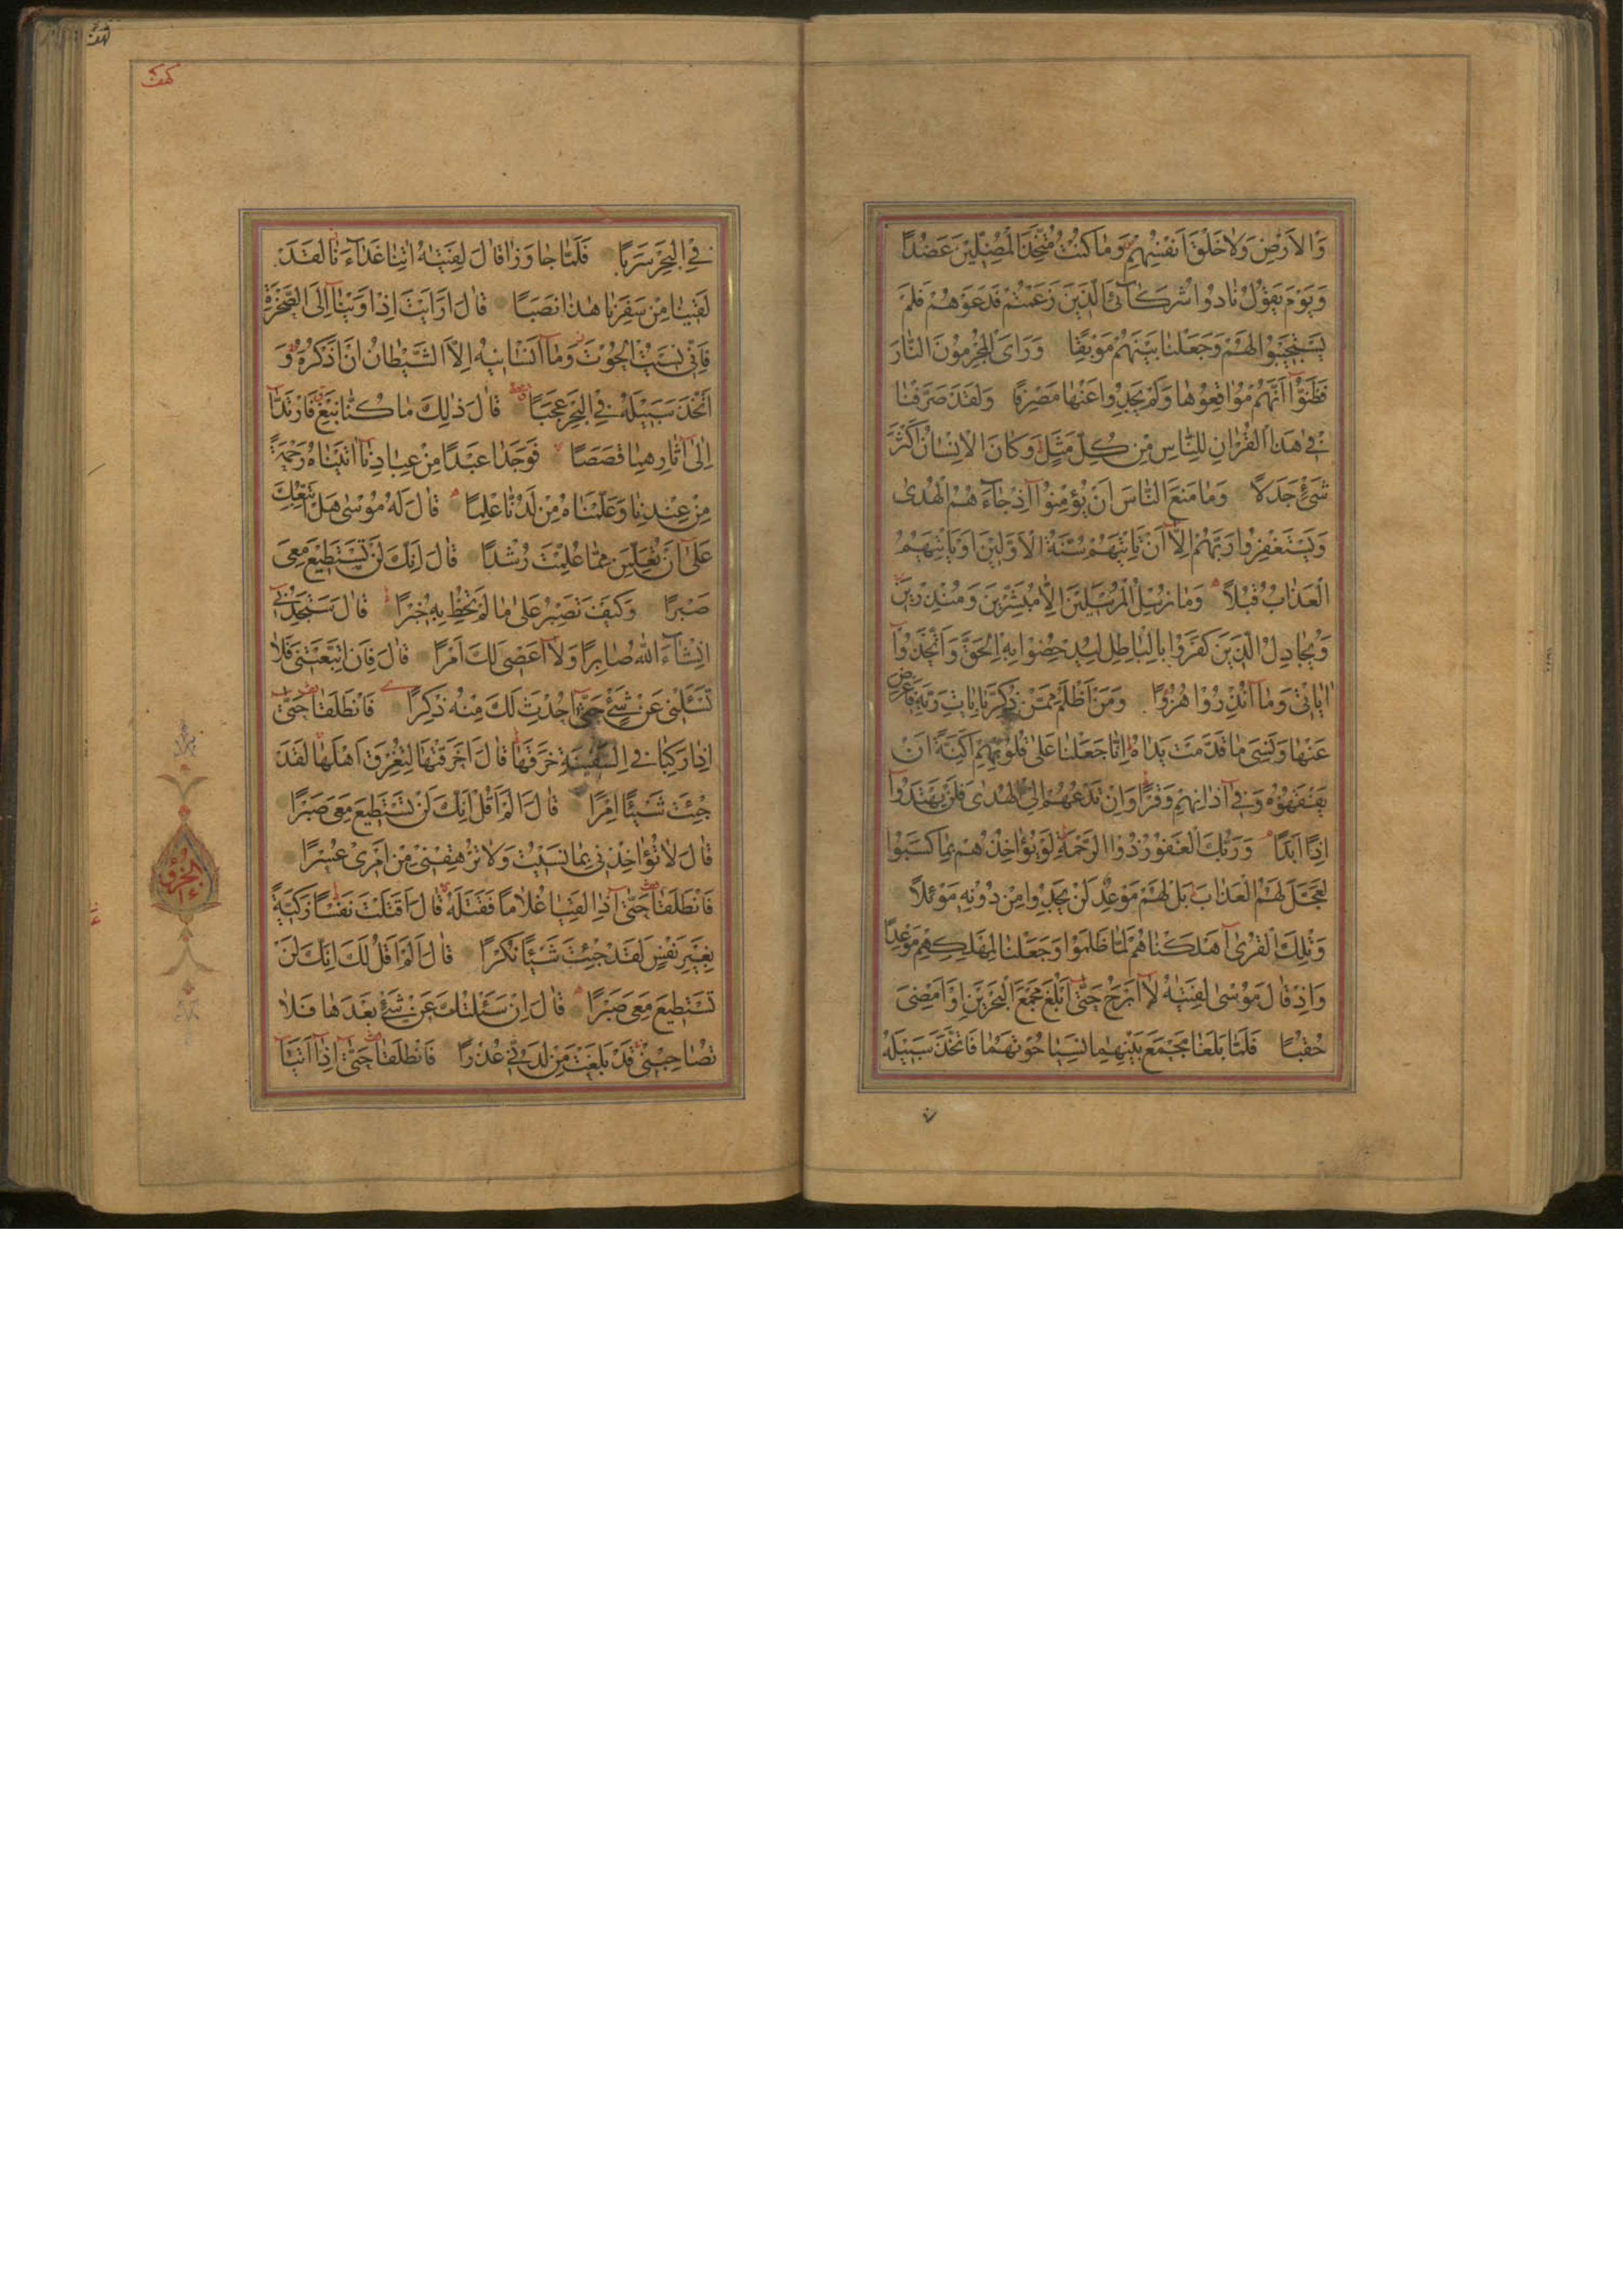 وَالْاَرْضِ وَلَا خَلْقَ اَنْفُسِهِمْ وَمَا كُنْتُ مُتَّخِذَ الْمُضِلِّينَ عَضُدًا
وَيَوْمَ يَقُولُ نَادُوا شُرَكَآئِيَ الَّذِينَ زَعَمْتُمْ فَدَعَوْهُمْ فَلَمْ
يَسْتَجِيبُوا لَهُمْ وَجَعَلْنَا بَيْنَهُمْ مَوْبِقًا وَرَاَى الْمُجْرِمُونَ النَّارَ
فَظَنُّوٓا اَنَّهُمْ مُوَاقِعُوهَا وَلَمْ يَجِدُوا عَنْهَا مَصْرِفًا وَلَقَدْ صَرَّفْنَا
فِي هٰذَا الْقُرْاٰنِ لِلنَّاسِ مِنْ كُلِّ مَثَلٍ وَكَانَ الْاِنْسَانُ اَكْثَرَ
شَيْءٍ جَدَلًا وَمَا مَنَعَ النَّاسَ اَنْ يُؤْمِنُوٓا اِذْ جَآءَهُمُ الْهُدٰى
وَيَسْتَغْفِرُوا رَبَّهُمْ اِلَّآ اَنْ تَأْتِيَهُمْ سُنَّةُ الْاَوَّلِينَ اَوْ يَأْتِيَهُمُ
الْعَذَابُ قُبُلًا وَمَا نُرْسِلُ الْمُرْسَلِينَ اِلَّا مُبَشِّرِينَ وَمُنْذِرِينَ
وَيُجَادِلُ الَّذِينَ كَفَرُوا بِالْبَاطِلِ لِيُدْحِضُوا بِهِ الْحَقَّ وَاتَّخَذُوٓا
اٰيَاتِي وَمَآ اُنْذِرُوا هُزُوًا وَمَنْ اَظْلَمُ مِمَّنْ ذُكِّرَ بِاٰيَاتِ رَبِّهِ فَاَعْرَضَ
عَنْهَا وَنَسِيَ مَا قَدَّمَتْ يَدَاهُ اِنَّا جَعَلْنَا عَلٰى قُلُوبِهِمْ اَكِنَّةً اَنْ
يَفْقَهُوهُ وَفِيٓ اٰذَانِهِمْ وَقْرًا وَاِنْ تَدْعُهُمْ اِلَى الْهُدٰى فَلَنْ يَهْتَدُوٓا
اِذًا اَبَدًا وَرَبُّكَ الْغَفُورُ ذُوا الرَّحْمَةِ لَوْ يُؤَاخِذُهُمْ بِمَا كَسَبُوا
لَعَجَّلَ لَهُمُ الْعَذَابَ بَلْ لَهُمْ مَوْعِدٌ لَنْ يَجِدُوا مِنْ دُونِهِ مَوْئِلًا
وَتِلْكَ الْقُرٰٓى اَهْلَكْنَاهُمْ لَمَّا ظَلَمُوا وَجَعَلْنَا لِمَهْلِكِهِمْ مَوْعِدًا
وَاِذْ قَالَ مُوسٰى لِفَتٰيهُ لَآ اَبْرَحُ حَتّٰٓى اَبْلُغَ مَجْمَعَ الْبَحْرَيْنِ اَوْ اَمْضِيَ
حُقُبًا فَلَمَّا بَلَغَا مَجْمَعَ بَيْنِهِمَا نَسِيَا حُوتَهُمَا فَاتَّخَذَ سَبِيلَهُ
كهف
فِي الْبَحْرِ سَرَبًا فَلَمَّا جَاوَزَا قَالَ لِفَتٰيهُ اٰتِنَا غَدَآءَنَا لَقَدْ
لَقِينَا مِنْ سَفَرِنَا هٰذَا نَصَبًا قَالَ اَرَاَيْتَ اِذْ اَوَيْنَآ اِلَى الصَّخْرَةِ
فَاِنِّي نَسِيتُ الْحُوتَ وَمَآ اَنْسَانِيهُ اِلَّا الشَّيْطَانُ اَنْ اَذْكُرَهُ وَ
اتَّخَذَ سَبِيلَهُ فِي الْبَحْرِ عَجَبًا قَالَ ذٰلِكَ مَا كُنَّا نَبْغِ فَارْتَدَّا
عَلٰٓى اٰثَارِهِمَا قَصَصًا فَوَجَدَا عَبْدًا مِنْ عِبَادِنَآ اٰتَيْنَاهُ رَحْمَةً
مِنْ عِنْدِنَا وَعَلَّمْنَاهُ مِنْ لَدُنَّا عِلْمًا قَالَ لَهُ مُوسٰى هَلْ اَتَّبِعُكَ
عَلٰٓى اَنْ تُعَلِّمَنِ مِمَّا عُلِّمْتَ رُشْدًا قَالَ اِنَّكَ لَنْ تَسْتَطِيعَ مَعِيَ
صَبْرًا وَكَيْفَ تَصْبِرُ عَلٰى مَا لَمْ تُحِطْ بِهِ خُبْرًا قَالَ سَتَجِدُنِيٓ
اِنْشَآءَ اللّٰهُ صَابِرًا وَلَآ اَعْصِي لَكَ اَمْرًا قَالَ فَاِنِ اتَّبَعْتَنِي فَلَا
تَسْئَلْنِي عَنْ شَيْءٍ حَتّٰٓى اُحْدِثَ لَكَ مِنْهُ ذِكْرًا فَانْطَلَقَا حَتّٰٓى
اِذَا رَكِبَا فِي السَّفِينَةِ خَرَقَهَا قَالَ اَخَرَقْتَهَا لِتُغْرِقَ اَهْلَهَا لَقَدْ
جِئْتَ شَيْئًا اِمْرًا قَالَ اَلَمْ اَقُلْ اِنَّكَ لَنْ تَسْتَطِيعَ مَعِيَ صَبْرًا
قَالَ لَا تُؤَاخِذْنِي بِمَا نَسِيتُ وَلَا تُرْهِقْنِي مِنْ اَمْرِي عُسْرًا
فَانْطَلَقَا حَتّٰٓى اِذَا لَقِيَا غُلَامًا فَقَتَلَهُ قَالَ اَقَتَلْتَ نَفْسًا زَكِيَّةً
بِغَيْرِ نَفْسٍ لَقَدْ جِئْتَ شَيْئًا نُكْرًا قَالَ اَلَمْ اَقُلْ لَكَ اِنَّكَ لَنْ
تَسْتَطِيعَ مَعِيَ صَبْرًا قَالَ اِنْ سَئَلْتُكَ عَنْ شَيْءٍ بَعْدَهَا فَلَا
تُصَاحِبْنِي قَدْ بَلَغْتَ مِنْ لَدُنِّي عُذْرًا فَانْطَلَقَا حَتّٰٓى اِذَآ اَتَيَآ
الجزؤ